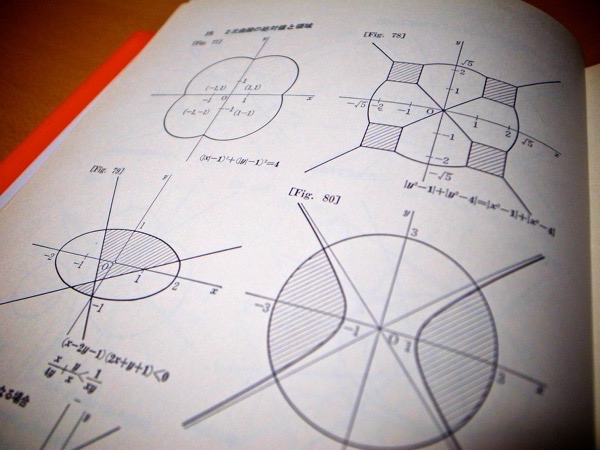 2次曲線の絶対値と領域
[Fig. 77]
y
(-1,1) (1,1)
-1 O 1 x
(-1,-1) -1 (1,-1)
(|x|-1)²+(|y|-1)²=4
[Fig. 78]
y
√5
2
1
-√5 -2 -1 O 1 2 √5 x
-1
-2
-√5
|y²-1|+|y²-4|=|x²-1|+|x²-4|
[Fig. 79]
y
1
-2 -1 O 1 2 x
-1
(x-2y-1)(2x+y+1)<0
x/4y+y/x<1/xy
[Fig. 80]
y
3
-3 -1 O 1 3 x
なる場合
y